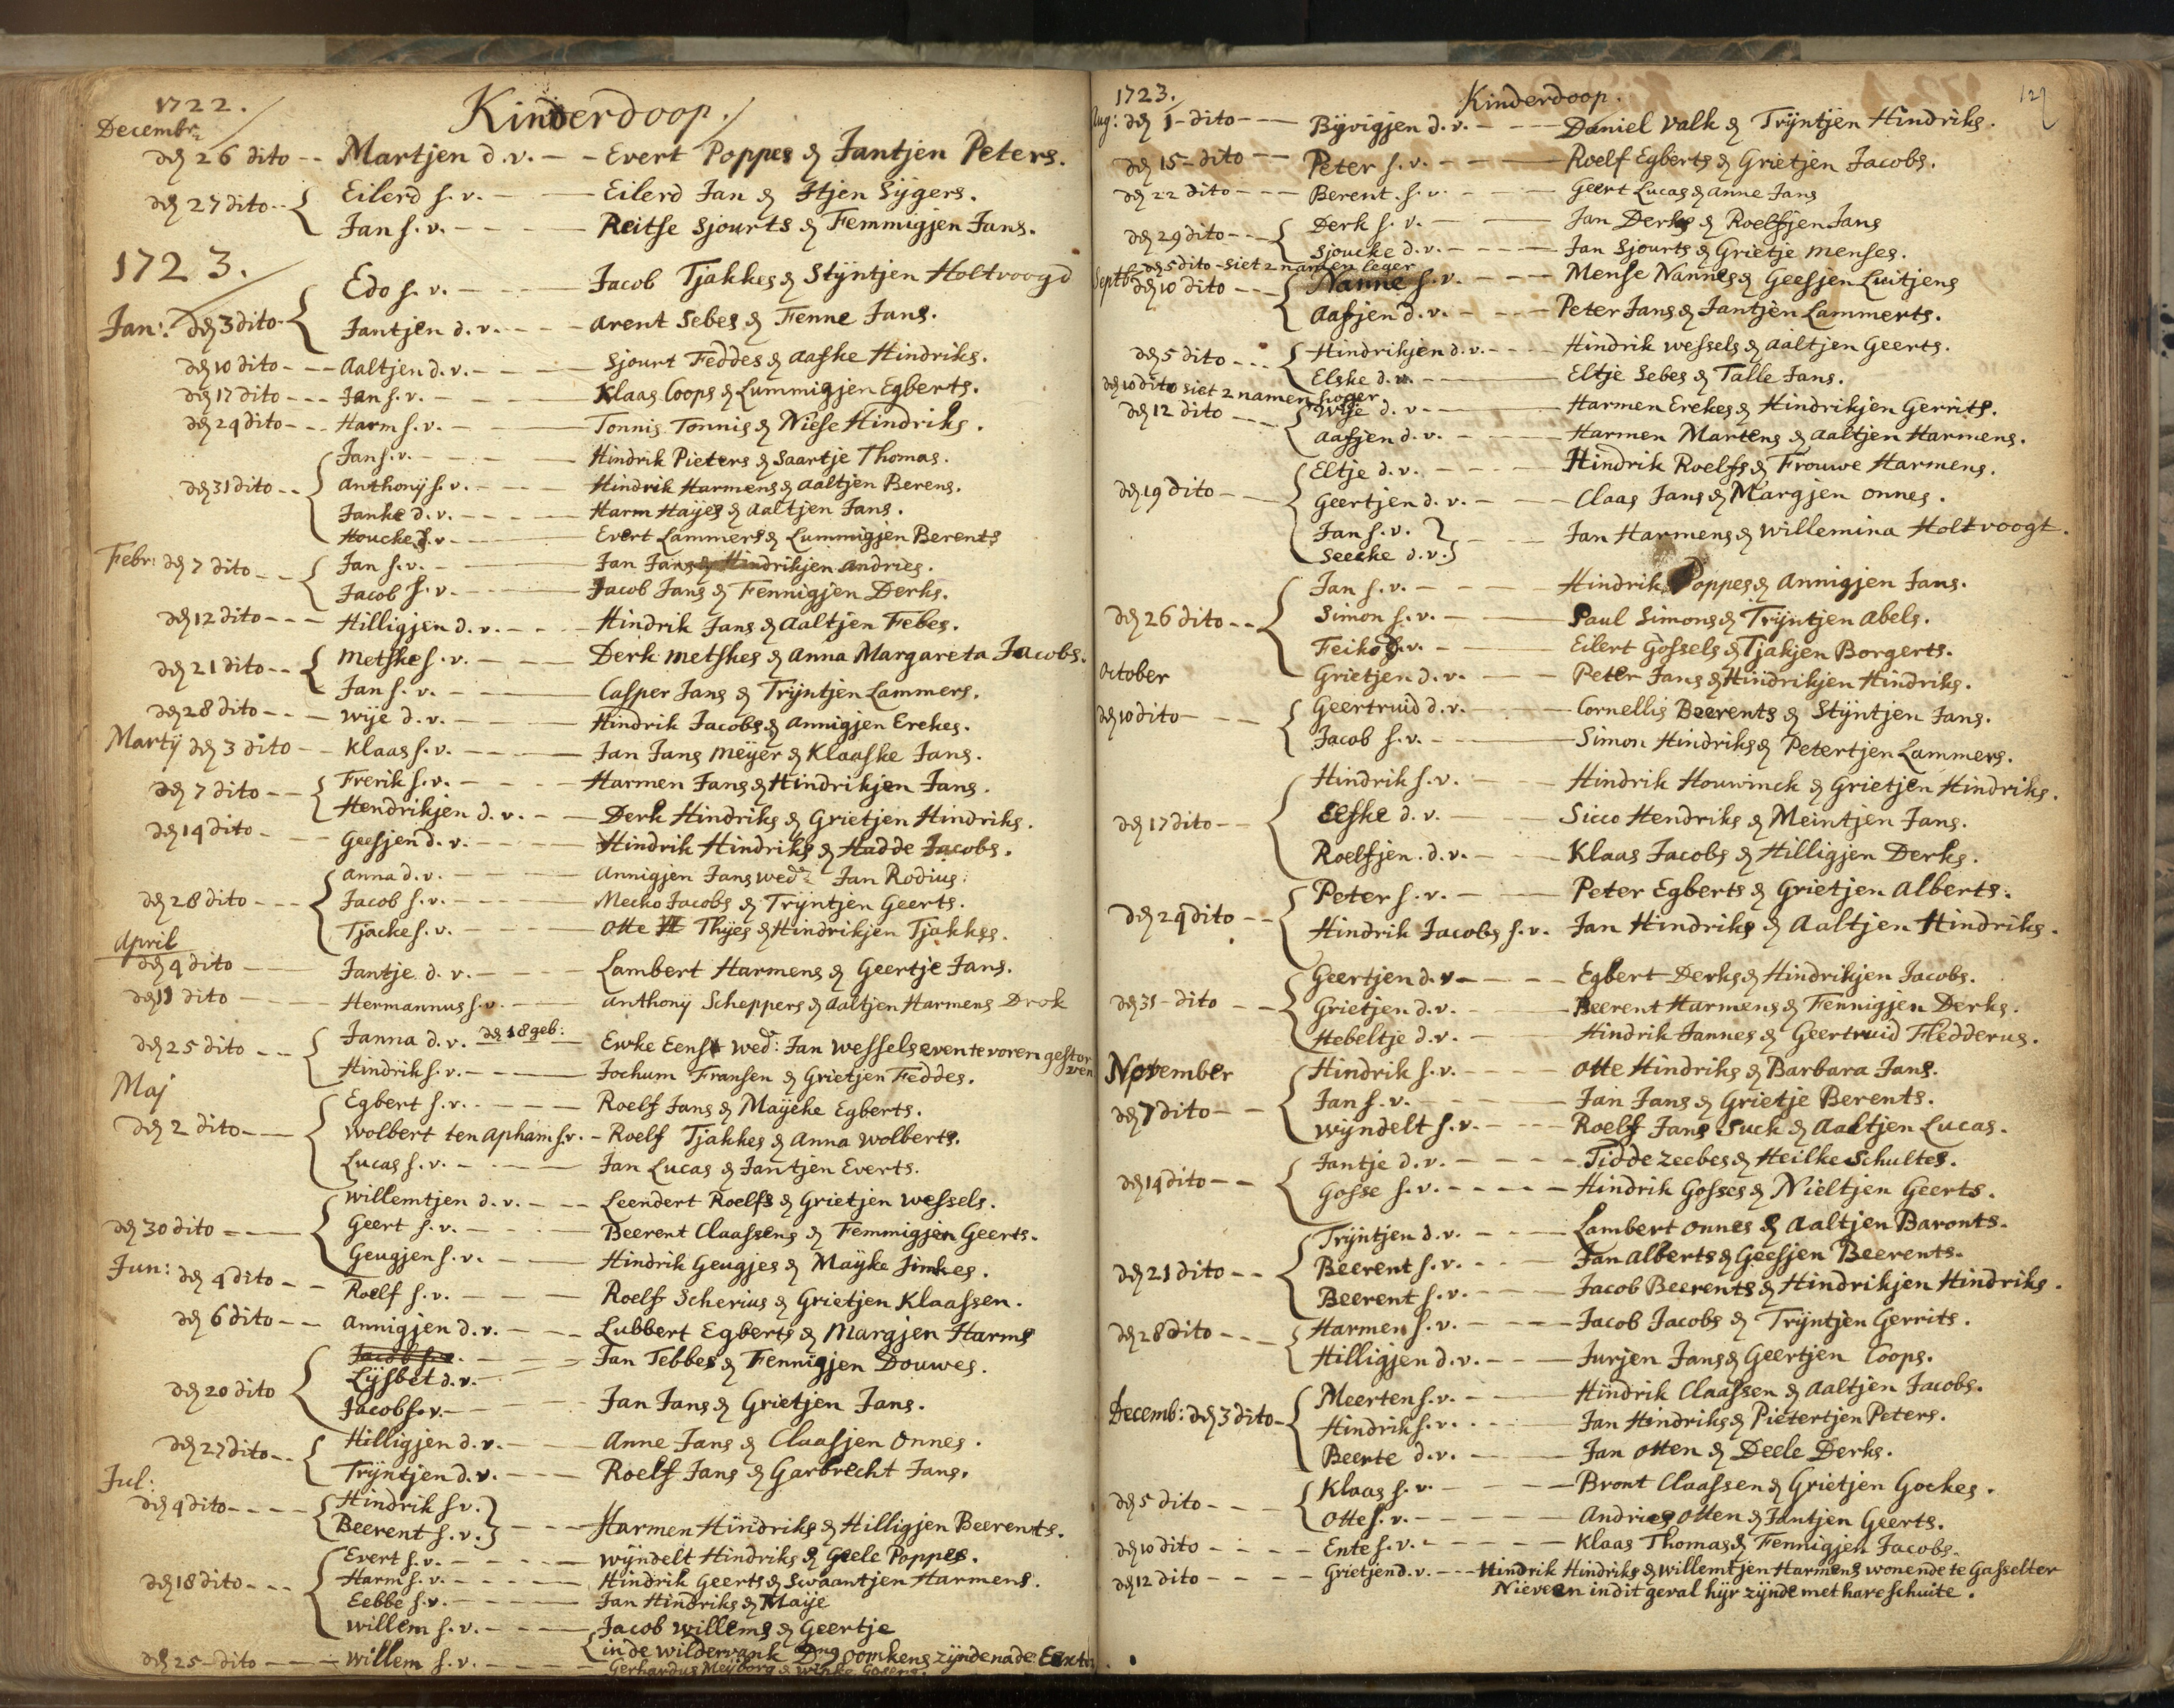 1722.
Kinderdoop.
Decembr:
den 26 dito -- Martjen d.v. -- Evert Poppes & Jantjen Peters.
den 27 dito -- Eilerd s.v. -- Eilerd Jan & Itjen Sijgers.
Jan s.v. -- Reitse Sjourts & Femmigjen Jans.
1723.
Edo s.v. -- Jacob Tjakkes & Stijntjen Holtvoogd
Jan: den 3 dito -- Jantjen d.v. -- Arent Sebes & Fenne Jans.
den 10 dito -- Aaltjen d.v. -- Sjourt Feddes & Aafke Hindriks.
den 17 dito -- Jan s.v. -- Klaas Coops & Lummigjen Egberts.
den 24 dito -- Harm s.v. -- Tonnis Tonnis & Niese Hindriks.
Jan s.v. -- Hindrik Pieters & Saartje Thomas.
den 31 dito -- Anthonij s.v. -- Hindrik Harmens & Aaltjen Berens.
Janke d.v. -- Harm Hayes & Aaltjen Jans.
Houcke d.v. -- Evert Lammers & Lummigjen Berents
Febr: den 7 dito -- Jan s.v. -- Jan Jans & Hindrikjen Andries.
Jacob s.v. -- Jacob Jans & Fennigjen Derks.
den 12 dito -- Hilligjen d.v. -- Hindrik Jans & Aaltjen Febes.
den 21 dito -- Metske s.v. -- Derk Metskes & Anna Margareta Jacobs.
Jan s.v. -- Casper Jans & Trijntjen Lammers.
den 28 dito -- Wije d.v. -- Hindrik Jacobs & Annigjen Erekes.
Martij den 3 dito -- Klaas s.v. -- Jan Jans Meijer & Klaaske Jans.
den 7 dito -- Frerik s.v. -- Harmen Jans & Hindrikjen Jans.
Hendrikjen d.v. -- Derk Hindriks & Grietjen Hindriks.
den 14 dito -- Geesjen d.v. -- Hindrik Hindriks & Hadde Jacobs.
Anna d.v. -- Annigjen Jans wedr Jan Rodius:
den 28 dito -- Jacob s.v. -- Mecko Jacobs & Trijntjen Geerts.
Tjacke s.v. -- Otte Thijes & Hindrikjen Tjakkes.
April
den 4 dito -- Jantje d.v. -- Lambert Harmens & Geertje Jans.
den 11 dito -- Hermannus s.v. -- Anthonij Scheppers & Aaltjen Harmens Drok
den 25 dito -- Janna d.v. den 18 geb: -- Ewke Eenst wed: Jan Wessels even te voren gestorven
Hindrik s.v. -- Jochum Fransen & Grietjen Feddes.
Maj
Egbert s.v. -- Roelf Jans & Mayeke Egberts.
den 2 dito -- Wolbert ten Apham s.v. -- Roelf Tjakkes & Anna Wolberts.
Lucas s.v. -- Jan Lucas & Jantjen Everts.
Willemtjen d.v. -- Leendert Roelfs & Grietjen Wessels.
den 30 dito -- Geert s.v. -- Beerent Claassens & Femmigjen Geerts.
Geugjen s.v. -- Hindrik Geugjes & Mayke Jimkes.
Jun: den 4 dito -- Roelf s.v. -- Roelf Scherius & Grietjen Klaassen.
den 6 dito -- Annigjen d.v. -- Lubbert Egberts & Margjen Harms
Jacob s.v. -- Jan Tebbes & Fennigjen Douwes.
den 20 dito Lijsbet d.v.
Jacob s.v. -- Jan Jans & Grietjen Jans.
den 27 dito -- Hilligjen d.v. -- Anne Jans & Claasjen Onnes.
Trijntjen d.v. -- Roelf Jans & Garbrecht Jans.
Jul:
den 4 dito -- Hindrik s.v.
Beerent s.v. -- Harmen Hindriks & Hilligjen Beerents.
Evert s.v. -- Wijndelt Hindriks & Geele Poppes.
den 18 dito -- Harm s.v. -- Hindrik Geerts & Swaantjen Harmens.
Eebbe s.v. -- Jan Hindriks & Maije
Willem s.v. -- Jacob Willems & Geertje
in de Wildervank Dns Oomkens zijnde na de Eext
den 25 dito -- Willem s.v. -- Gerhardus Meijborg & Wipke Gosens.
1723.
Kinderdoop.
129
Aug: den 1 dito -- Bijvigjen d.v. -- Daniel Valk & Trijntjen Hindriks.
den 15 dito -- Peter s.v. -- Roelf Egberts & Grietjen Jacobs.
den 22 dito -- Berent s.v. -- Geert Lucas & Anne Jans
den 29 dito -- Derk s.v. -- Jan Derks & Roelfjen Jans
Sjoucke d.v. -- Jan Sjourts & Grietje Menses.
den 5 dito - siet 2 namen leger
Septb: den 10 dito -- Nanne s.v. -- Mense Nannes & Geesjen Luitjens
Aafjen d.v. -- Peter Jans & Jantjen Lammerts.
den 5 dito -- Hindrikjen d.v. -- Hindrik Wessels & Aaltjen Geerts.
Elske d.v. -- Eltje Sebes & Talle Jans.
den 10 dito siet 2 namen hoger
den 12 dito -- Wije d.v. -- Harmen Erekes & Hindrikjen Gerrits.
Aafjen d.v. -- Harmen Martens & Aaltjen Harmens.
Eltje d.v. -- Hindrik Roelfs & Frouwe Harmens.
den 19 dito -- Geertjen d.v. -- Claas Jans & Margjen Onnes.
Jan s.v.
Seecke d.v. -- Jan Harmens & Willemina Holtvoogt.
Jan s.v. -- Hindrik Poppes & Annigjen Jans.
den 26 dito -- Simon s.v. -- Paul Simons & Trijntjen Abels.
Feiko s.v. -- Eilert Gossels & Tjakjen Borgerts.
October
Grietjen d.v. -- Peter Jans & Hindrikjen Hindriks.
den 10 dito -- Geertruid d.v. -- Cornellis Beerents & Stijntjen Jans.
Jacob s.v. -- Simon Hindriks & Petertjen Lammers.
Hindrik s.v. -- Hindrik Houwinck & Grietjen Hindriks.
den 17 dito -- Eefke d.v. -- Sicco Hendriks & Meintjen Jans.
Roelfjen d.v. -- Klaas Jacobs & Hilligjen Derks.
den 24 dito -- Peter s.v. -- Peter Egberts & Grietjen Alberts.
Hindrik Jacobs s.v. Jan Hindriks & Aaltjen Hindriks.
Geertjen d.v. -- Egbert Derks & Hindrikjen Jacobs.
den 31 dito -- Grietjen d.v. -- Beerent Harmens & Fennigjen Derks.
Hebeltje d.v. -- Hindrik Jannes & Geertruid Fledderus.
November
Hindrik s.v. -- Otte Hindriks & Barbara Jans.
den 7 dito -- Jan s.v. -- Jan Jans & Grietje Berents.
Wijndelt s.v. -- Roelf Jans Suck & Aaltjen Lucas.
den 14 dito -- Jantje d.v. -- Tidde Zeebes & Heilke Schultes.
Gosse s.v. -- Hindrik Gosses & Nieltjen Geerts.
Trijntjen d.v. -- Lambert Onnes & Aaltjen Baronts.
den 21 dito -- Beerent s.v. -- Jan Alberts & Geesjen Beerents.
Beerent s.v. -- Jacob Beerents & Hindrikjen Hindriks.
den 28 dito -- Harmen s.v. -- Jacob Jacobs & Trijntjen Gerrits.
Hilligjen d.v. -- Jurjen Jans & Geertjen Coops.
Meerten s.v. -- Hindrik Claassen & Aaltjen Jacobs.
Decemb: den 3 dito -- Hindrik s.v. -- Jan Hindriks & Pietertjen Peters.
Beerte d.v. -- Jan Otten & Deele Derks.
den 5 dito -- Klaas s.v. -- Bront Claassen & Grietjen Gockes.
Otte s.v. -- Andries Otten & Jantjen Geerts.
den 10 dito -- Ente s.v. -- Klaas Thomas & Fennigjen Jacobs.
den 12 dito -- Grietjen d.v. -- Hindrik Hindriks & Willemtjen Harmens wonende te Gasselter
Nieveen in dit geval hijr zijnde met hare schuite.